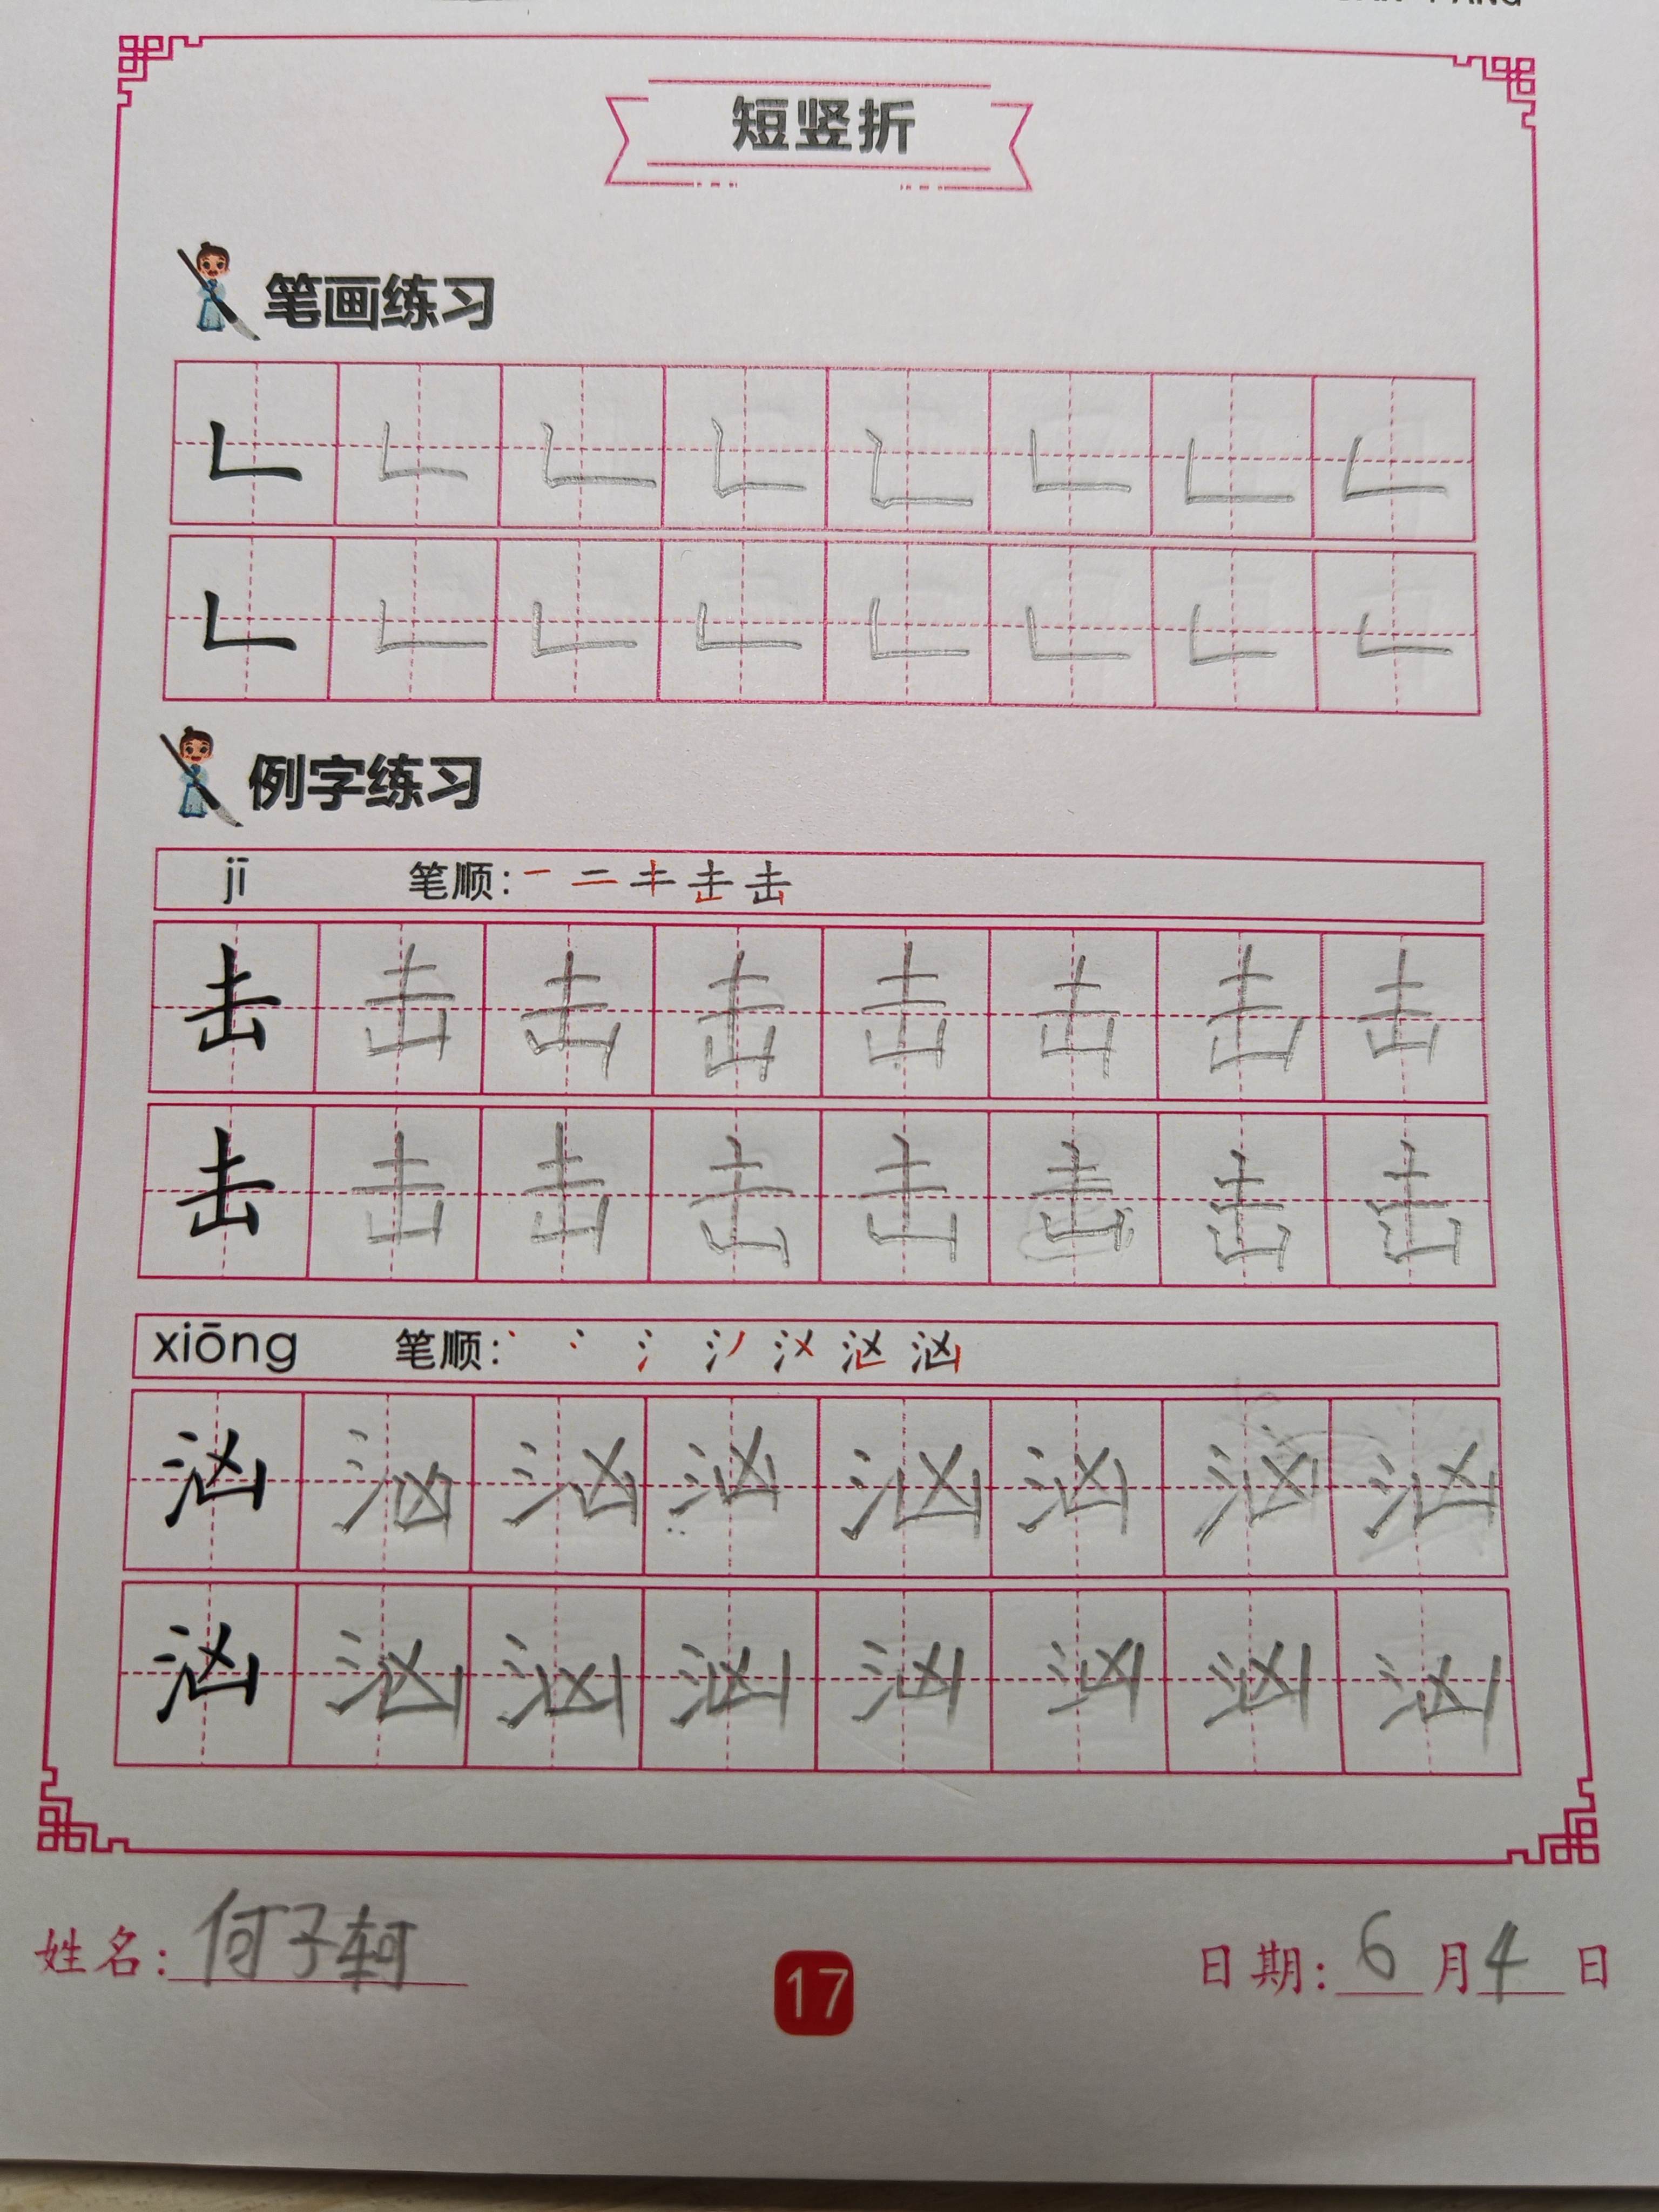 短竖折
笔画练习
𠃊 𠃊 𠃊 𠃊 𠃊 𠃊 𠃊 𠃊
𠃊 𠃊 𠃊 𠃊 𠃊 𠃊 𠃊 𠃊
例字练习
jī 笔顺：一 二 キ 击 击
击 击 击 击 击 击 击 击
击 击 击 击 击 击 击 击
xiōng 笔顺：丶 冫 氵 汹
汹 汹 汹 汹 汹 汹 汹 汹
汹 汹 汹 汹 汹 汹 汹 汹
姓名：何子轲 17 日期：6月4日